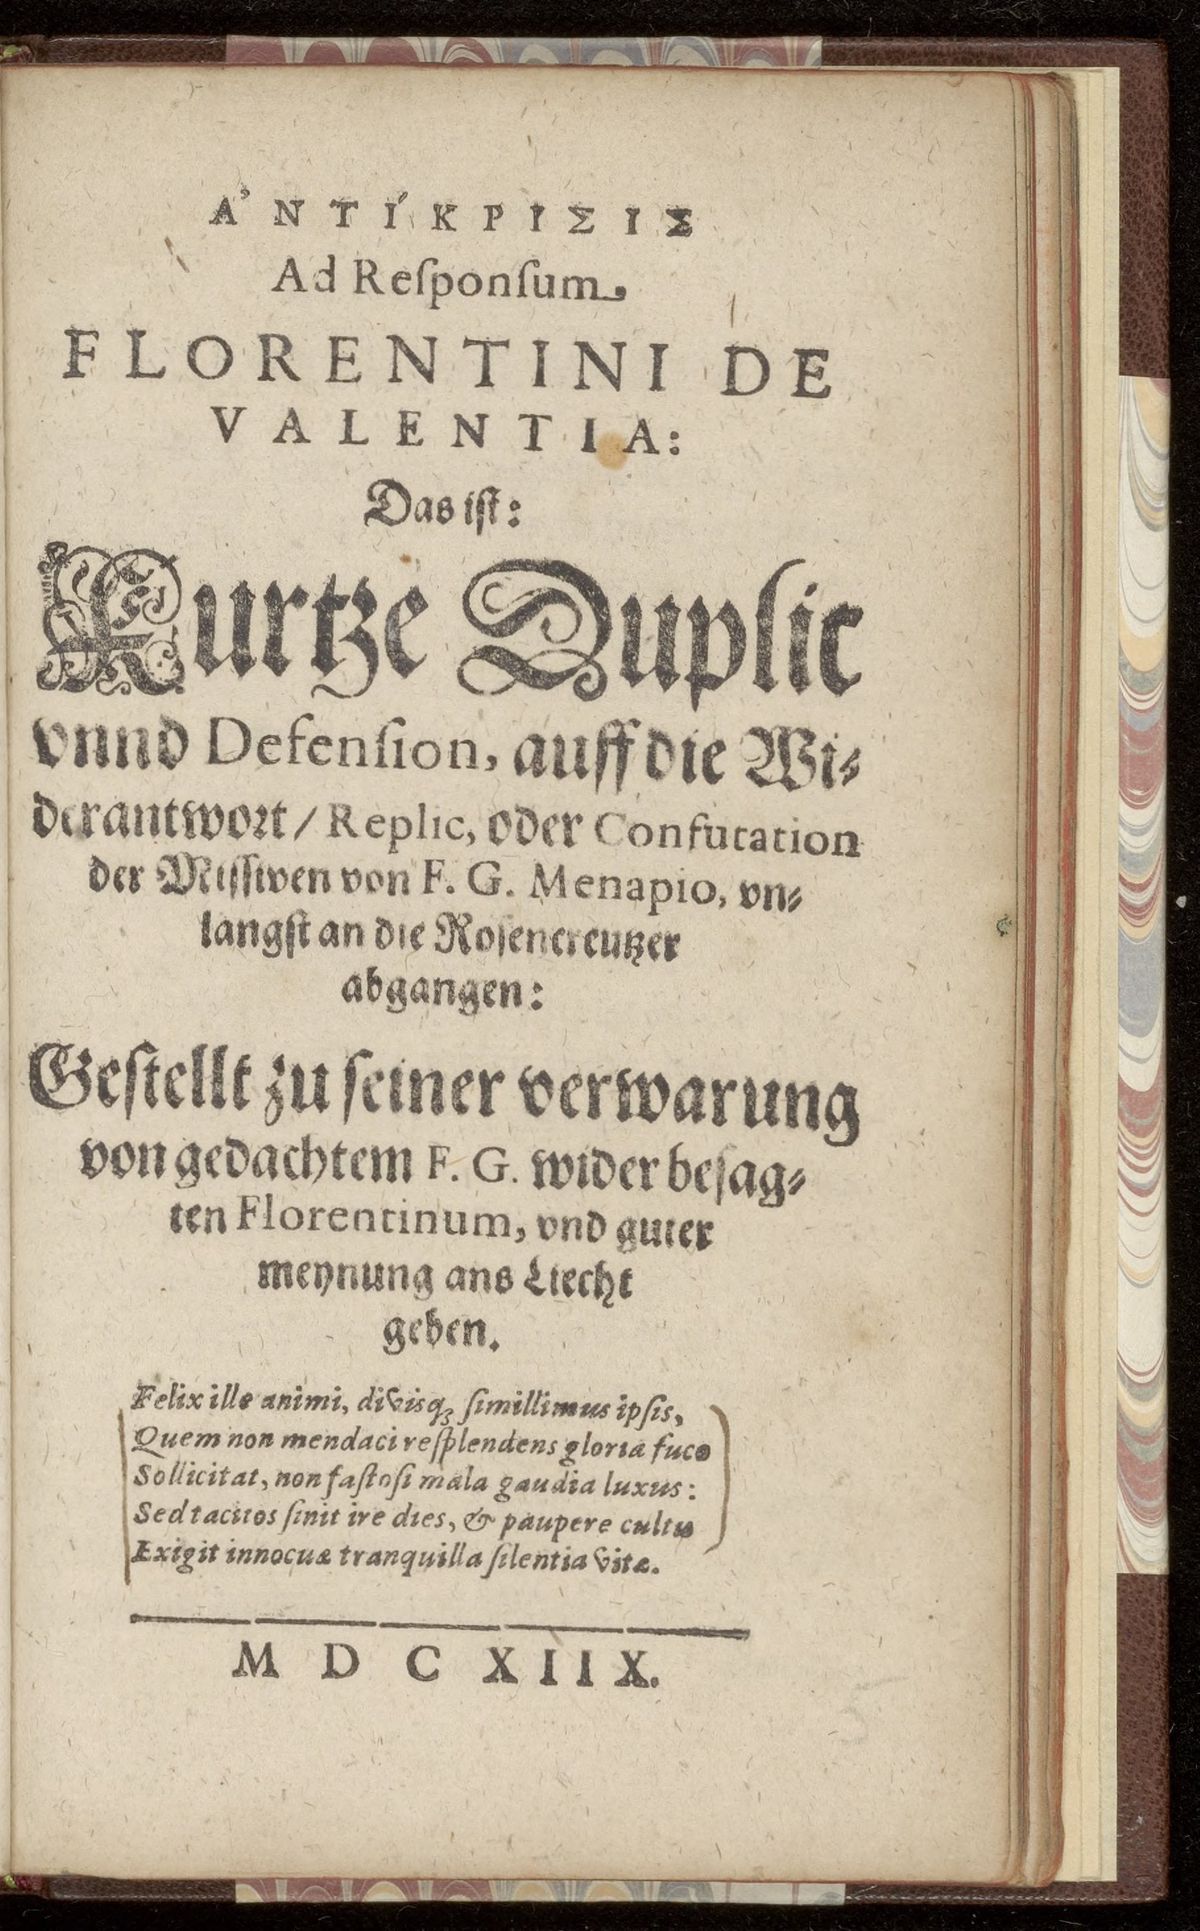 ἈΝΤΊΚΡΙΣΙΣ
Ad Reſponſum,
FLORENTINI DE
VALENTIA:
Das iſt:
Kurtze Duplic
vnnd Defenſion, auff die Wi-
derantwort / Replic, oder Confutation
der Miſſiven von F. G. Menapio, vn-
langſt an die Roſencreutzer
abgangen:
Geſtellt zu ſeiner verwarung
von gedachtem F. G. wider beſag-
ten Florentinum, vnd guter
meynung ans Liecht
geben.
Felix ille animi, divisq; ſimillimus ipſis,
Quem non mendaci reſplendens gloria fuco
Sollicitat, non faſtoſi mala gaudia luxus:
Sed tacitos ſinit ire dies, & paupere cultu
Exigit innocuæ tranquilla ſilentia vitæ.
MDCXIIX.